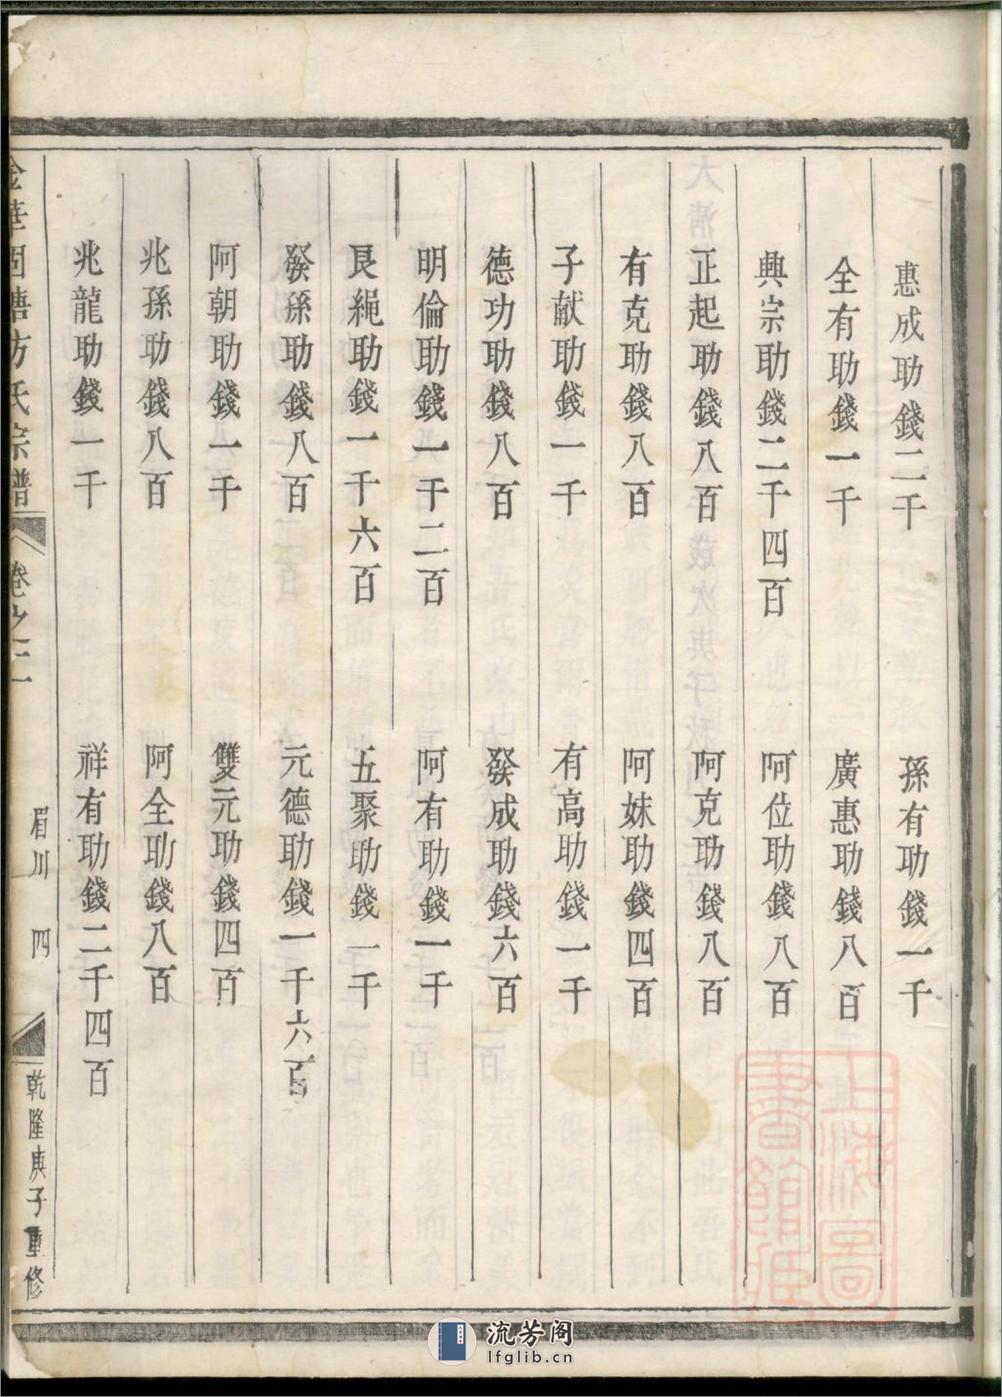 惠成助錢二千　孫有助錢一千
全有助錢一千　廣惠助錢八百
興宗助錢二千四百　阿位助錢八百
正起助錢八百　阿克助錢八百
有克助錢八百　阿妹助錢四百
子献助錢一千　有高助錢一千
德功助錢八百　發成助錢六百
明倫助錢一千二百　阿有助錢一千
艮繩助錢一千六百　五聚助錢一千
發孫助錢八百　元德助錢一千六百
阿朝助錢一千　雙元助錢四百
兆孫助錢八百　阿全助錢八百
兆龍助錢一千　祥有助錢二千四百
金華固塘方氏宗譜　卷之二　眉川　四　乾隆庚子重修
上海圖書館藏
流芳阁
lfglib.cn